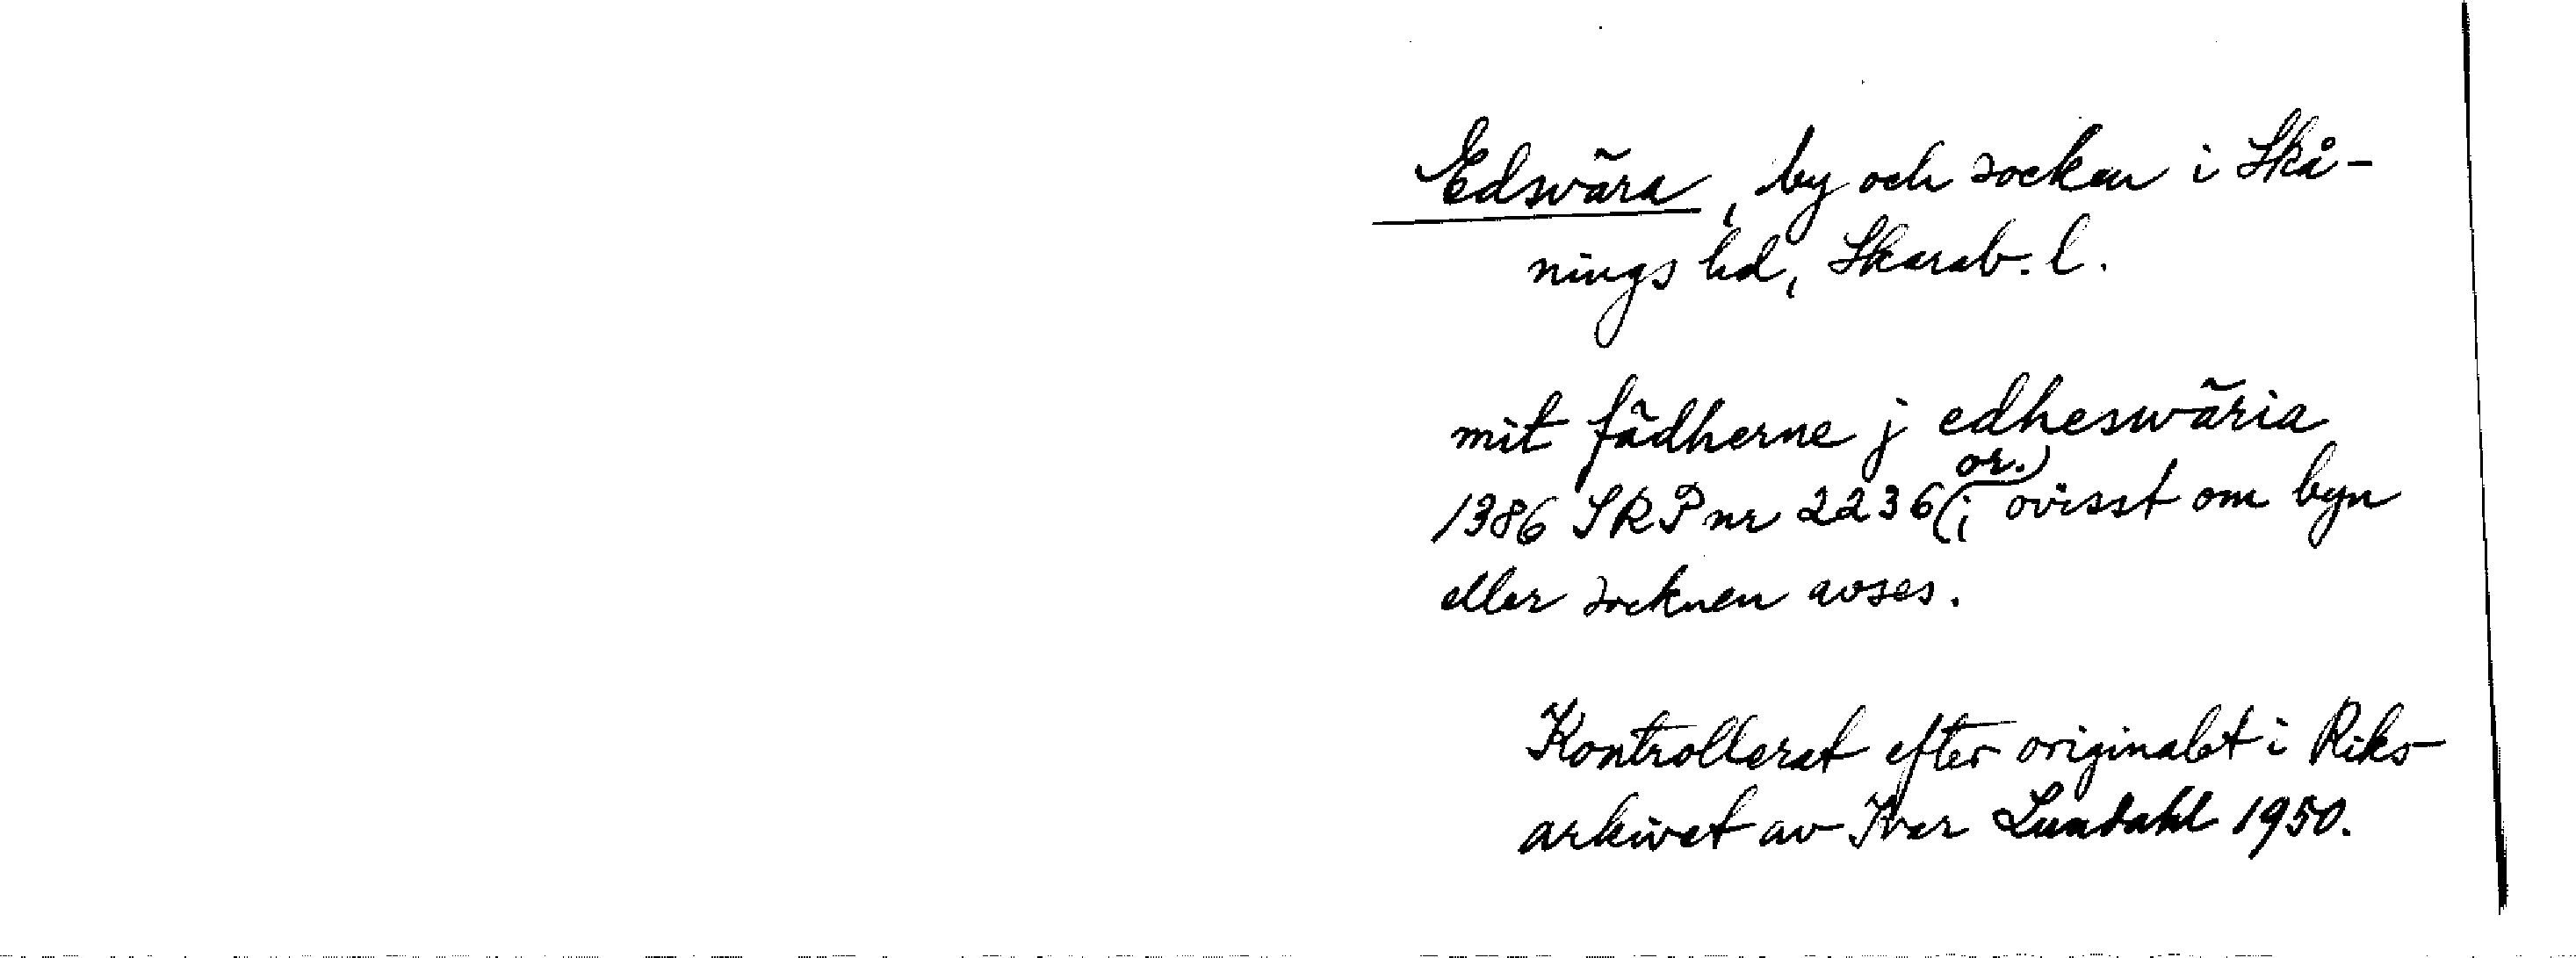 Edsvära, by och socken i Skå-
nings hd, Skarab. l.
mit fädherne j edheswäria
1386 SRP nr 2236 (or.); ovisst om byn
eller socknen avses.
Kontrollerat efter originalet i Riks-
arkivet av Ivar Lundahl 1950.